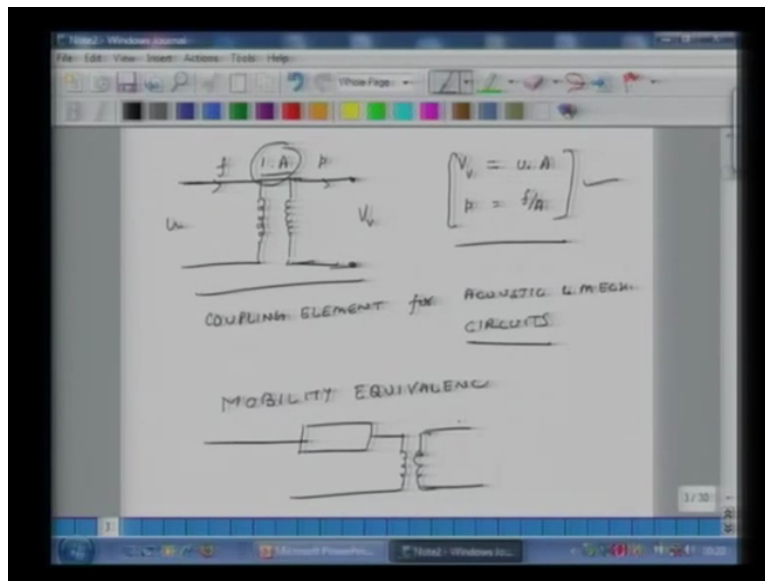 Note2 - Windows Journal
File Edit View Insert Actions Tools Help
Whole Page
f 1:A p
u Vv
Vv = u. A
p = f/A
COUPLING ELEMENT for ACOUSTIC & MECH.
CIRCUITS
MOBILITY EQUIVALENC
3 / 30
3
Microsoft PowerPoin... Note2 - Windows Jo...